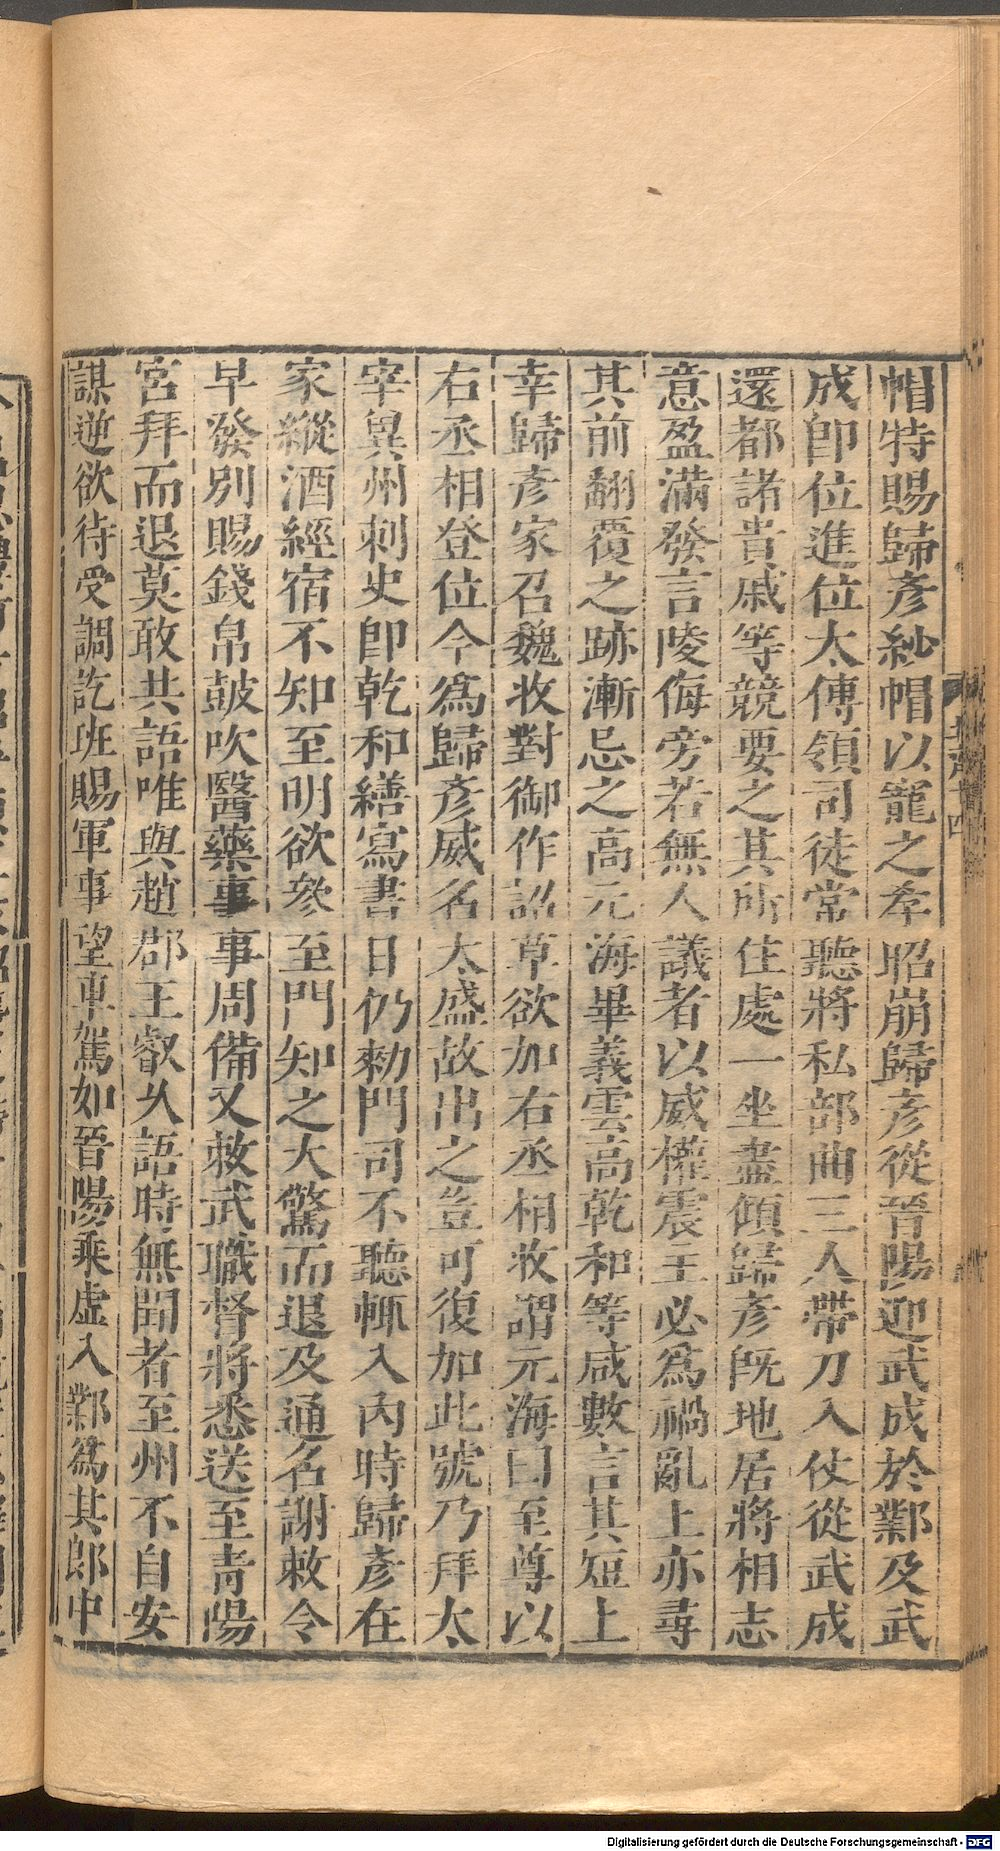 帽特賜歸彦紗帽以寵之孝昭崩歸彦從晉陽迎武成於鄴及武
成卽位進位太傅領司徒常聽將私部曲三人帶刀入仗從武成
還都諸貴戚等競要之其所住處一坐盡傾歸彦既地居將相志
意盈滿發言陵侮旁若無人議者以威權震主必爲禍亂上亦尋
其前翻覆之跡漸忌之高元海畢義雲高乾和等咸數言其短上
幸歸彦家召魏收對御作詔草欲加右丞相收謂元海曰至尊以
右丞相登位今爲歸彦威名太盛故出之豈可復加此號乃拜太
宰兾州刺史卽乾和繕寫書日仍勅門司不聽輒入內時歸彦在
家縱酒經宿不知至明欲參至門知之大驚而退及通名謝敕令
早發別賜錢帛鼓吹醫藥事事周備又敕武職督將悉送至靑陽
宮拜而退莫敢共語唯與趙郡王叡乆語時無聞者至州不自安
謀逆欲待受調訖班賜軍事望車駕如晉陽乘虛入鄴爲其郎中
Digitalisierung gefördert durch die Deutsche Forschungsgemeinschaft - DFG